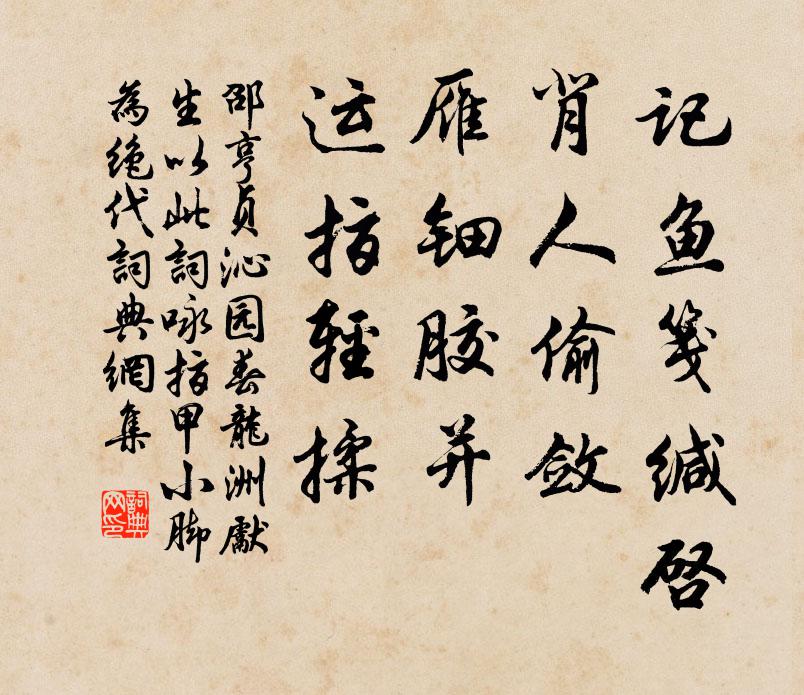 记鱼笺缄启
肖人偷敛
雁钿胶并
运指轻揉
邵亨贞沁园春龍洲獻
生以此詞咏指甲小脚
為绝代詞典網集
詞典网印